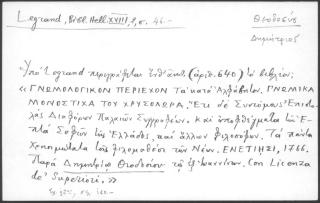 Legrand, Bibl. Hell. XVIII, 2, σ. 46.-
Θεοδοσίου
Δημήτριος
Ὑπὸ Legrand περιγράφεται (ἀριθ. 640) τὸ βιβλίον:
« ΓΝΩΜΟΛΟΓΙΚΟΝ ΠΕΡΙΕΧΟΝ Τὰ κατ' Ἀλφάβητον. ΓΝΩΜΙΚΑ
ΜΟΝΟΣΤΙΧΑ ΤΟΥ ΧΡΥΣΟΛΩΡΑ. Ἔτι δὲ Συντόμους Ἐπιστο-
λὰς Διαφόρων Παλαιῶν Συγγραφέων. Καὶ ἀποφθέγματα τῶν Ἑ-
πτὰ Σοφῶν τῆς Ἑλλάδος, καὶ ἄλλων φιλοσόφων. Τὰ πάντα
Χρησιμώτατα τοῖς φιλομαθέσι τῶν Νέων. ΕΝΕΤΙΗΣΙ, 1766.
Παρὰ Δημητρίῳ Θεοδοσίου τῷ ἐξ Ἰωαννίνων. Con Licenza
de' Superiori. »